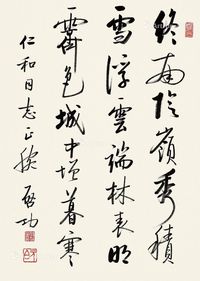 終南陰嶺秀積
雪浮雲端林表明
霽色城中增暮寒
仁和同志正腕 啟功